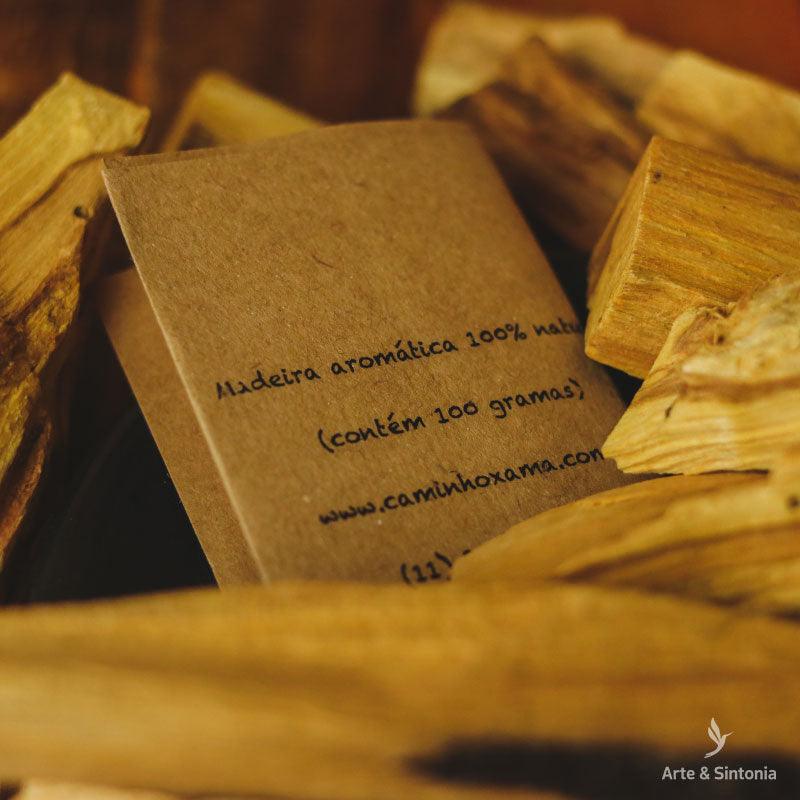 Madeira aromática 100% natu
(contém 100 gramas)
www.caminhoxama.com
(11)
Arte & Sintonia